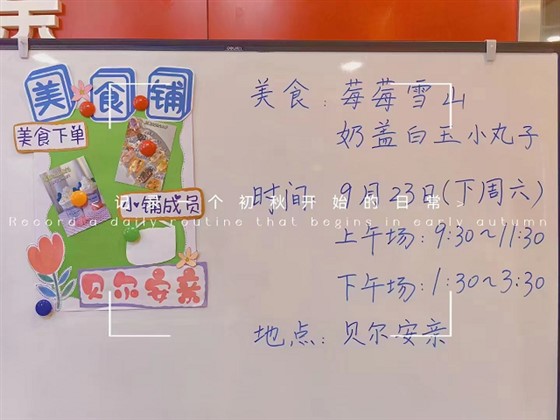 美食铺
美食下单
小铺成员
贝尔安亲
美食：莓莓雪山
奶盖白玉小丸子
时间：9月23日(下周六)
上午场：9:30～11:30
下午场：1:30～3:30
地点：贝尔安亲
个初秋开始的日常
Record a daily routine that begins in early autumn